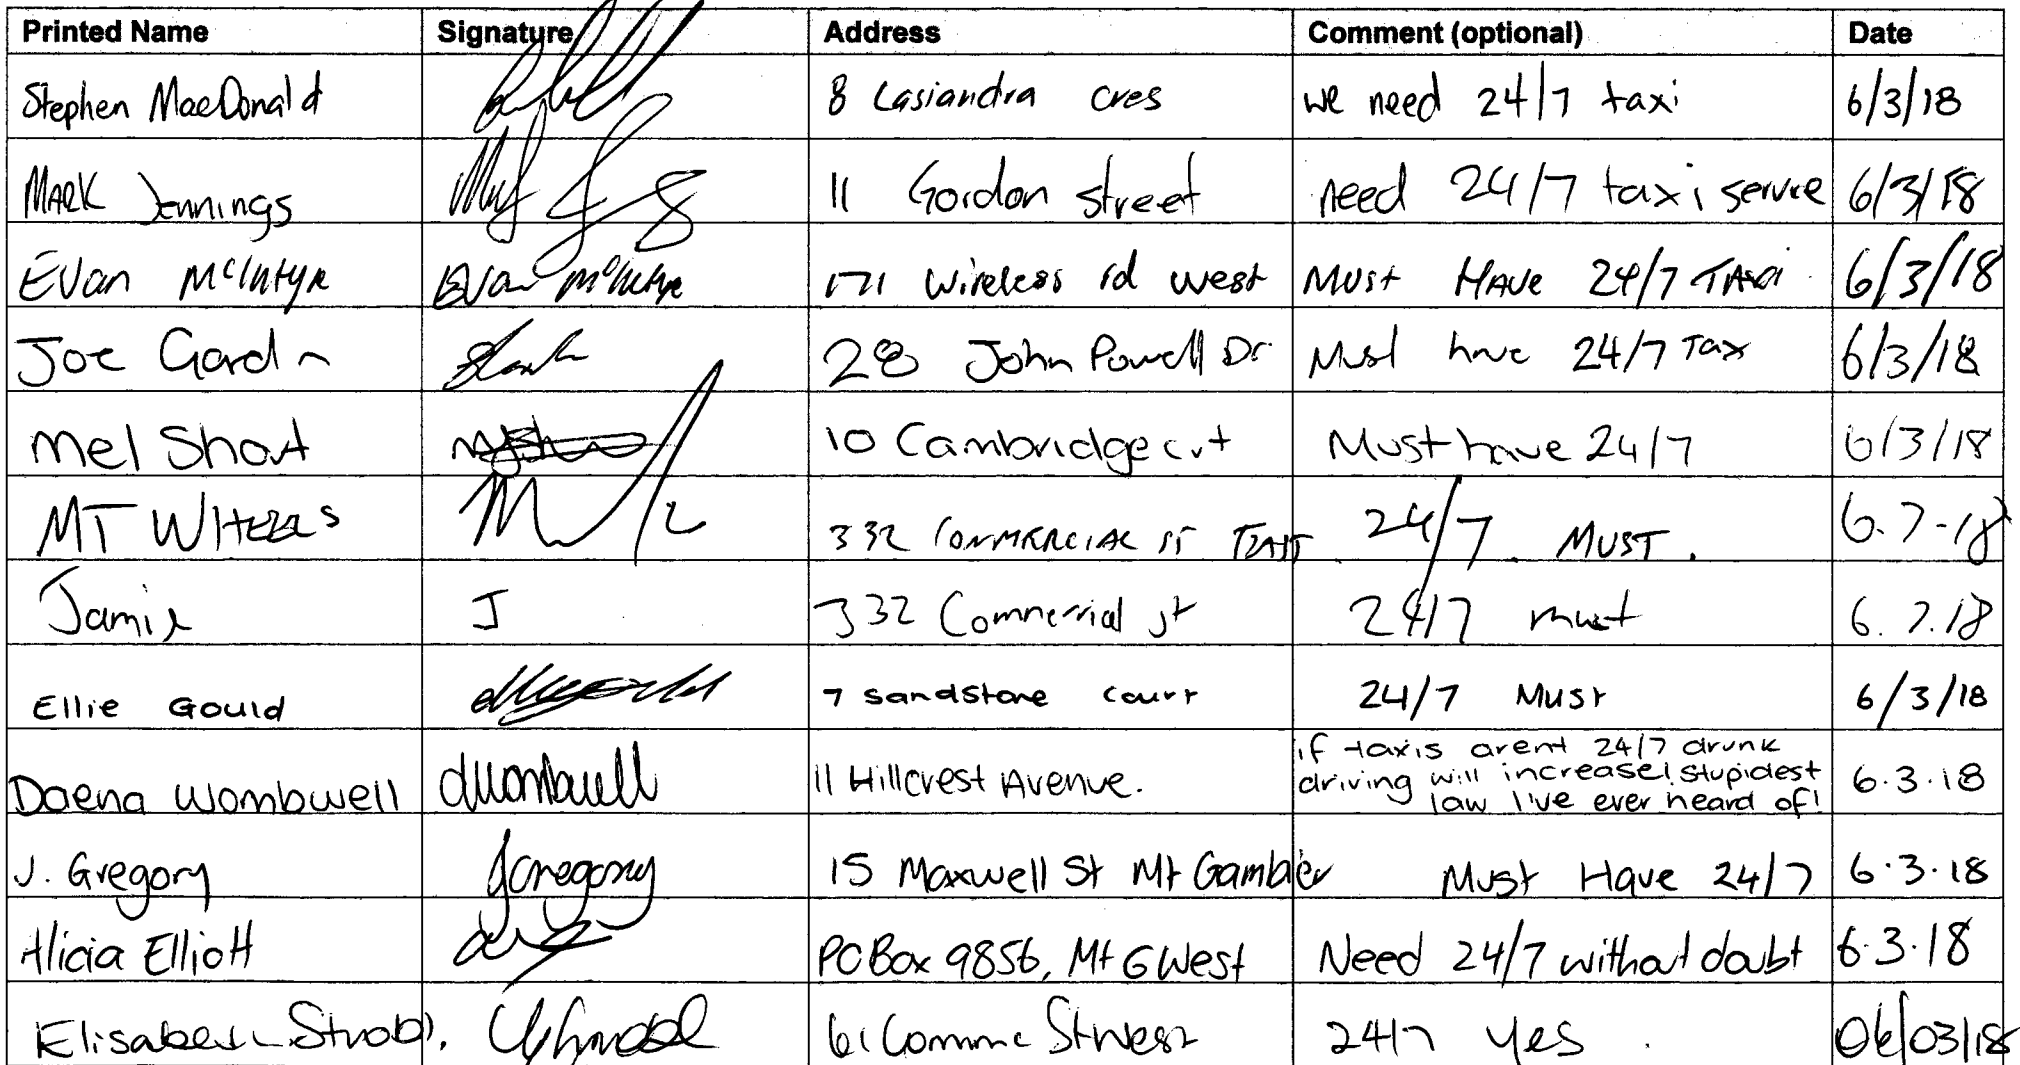 Printed Name Signature Address Comment (optional) Date
Stephen MacDonald 8 Lasiandra cres we need 24/7 taxi 6/3/18
Mark Jennings 11 Gordon street need 24/7 taxi service 6/3/18
Evan McIntyre Evan McIntyre 171 Wireless rd west Must Have 24/7 Taxi 6/3/18
Joe 28 John Powell Dr Must have 24/7 Tax 6/3/18
Mel Short 10 Cambridge crt Must have 24/7 6/3/18
MT 332 Commercial St East 24/7 Must. 6.7-18
Jamie J 332 Commercial st 24/7 must 6.7.18
Ellie Gould 7 Sandstone court 24/7 Must 6/3/18
Daena Wombwell dWombwell 11 Hillcrest Avenue. if taxis arent 24/7 drunk
driving will increase! stupidest 6.3.18
law I've ever heard of!
J. Gregory JGregory 15 Maxwell St Mt Gambier Must Have 24/7 6.3.18
Alicia Elliott PO Box 9856, Mt G West Need 24/7 without doubt 6.3.18
61 24/7 yes. 06/03/18